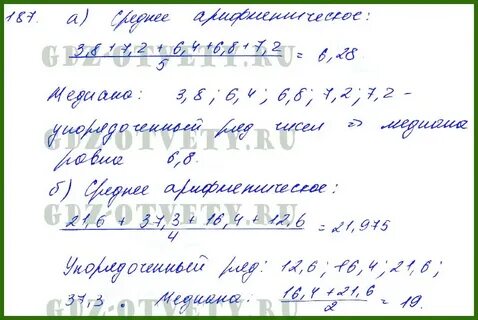 187. а) Среднее арифметическое:
3,8 + 7,2 + 6,4 + 6,8 + 7,2 / 5 = 6,28.
Медиана: 3,8; 6,4; 6,8; 7,2; 7,2 –
упорядоченный ряд чисел => медиана
равна 6,8.
б) Среднее арифметическое:
21,6 + 37,3 + 16,4 + 12,6 / 4 = 21,975
Упорядоченный ряд: 12,6; 16,4; 21,6;
37,3. Медиана: 16,4 + 21,6 / 2 = 19.
GDZ-OTVETY.RU
GDZ-OTVETY.RU
GDZ-OTVETY.RU
GDZ-OTVETY.RU